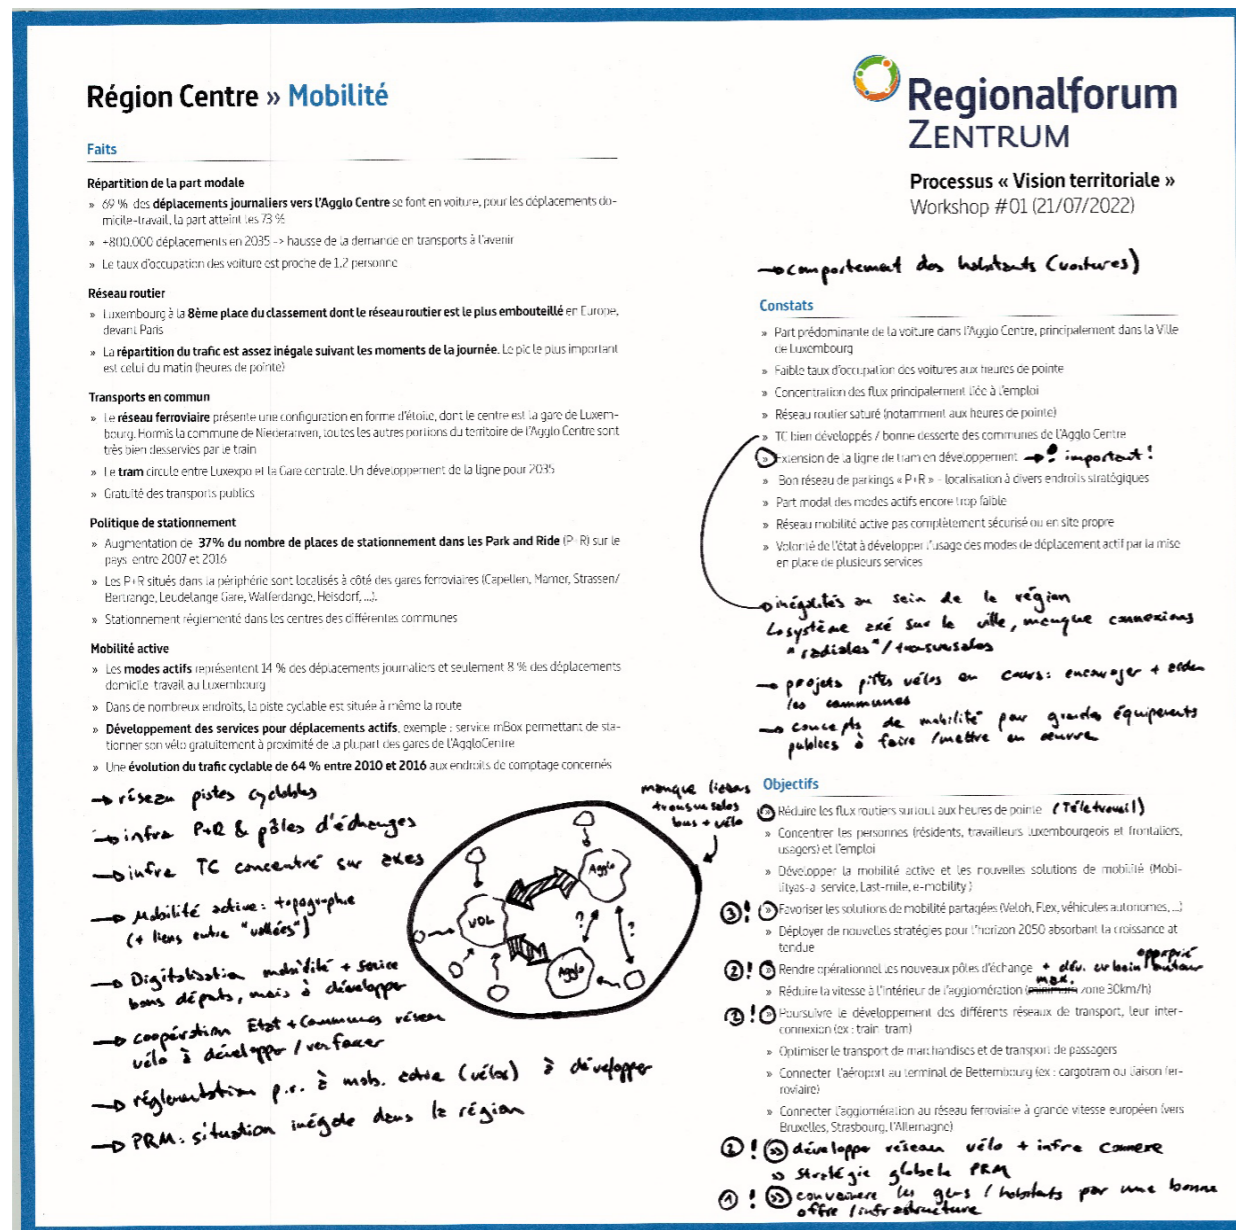 Région Centre » Mobilité
Faits
Répartition de la part modale
» 69 % des déplacements journaliers vers l'Agglo Centre se font en voiture, pour les déplacements do-
micile-travail, la part atteint les 73 %
» +800.000 déplacements en 2035 -> hausse de la demande en transports à l'avenir
» Le taux d'occupation des voiture est proche de 1,2 personne
Réseau routier
» Luxembourg à la 8ème place du classement dont le réseau routier est le plus embouteillé en Europe,
devant Paris
» La répartition du trafic est assez inégale suivant les moments de la journée. Le pic le plus important
est celui du matin (heures de pointe)
Transports en commun
» Le réseau ferroviaire présente une configuration en forme d'étoile, dont le centre est la gare de Luxem-
bourg. Hormis la commune de Niederanven, toutes les autres portions du territoire de l'Agglo Centre sont
très bien desservies par le train
» Le tram circule entre Luxexpo et la Gare centrale. Un développement de la ligne pour 2035
» Gratuité des transports publics
Politique de stationnement
» Augmentation de 37% du nombre de places de stationnement dans les Park and Ride (P+R) sur le
pays entre 2007 et 2016
» Les P+R situés dans la périphérie sont localisés à côté des gares ferroviaires (Capellen, Mamer, Strassen/
Bertrange, Leudelange Gare, Walferdange, Heisdorf, ...).
» Stationnement réglementé dans les centres des différentes communes
Mobilité active
» Les modes actifs représentent 14 % des déplacements journaliers et seulement 8 % des déplacements
domicile travail au Luxembourg
» Dans de nombreux endroits, la piste cyclable est située à même la route
» Développement des services pour déplacements actifs, exemple : service mBox permettant de sta-
tionner son vélo gratuitement à proximité de la plupart des gares de l'AggloCentre
» Une évolution du trafic cyclable de 64 % entre 2010 et 2016 aux endroits de comptage concernés
→ réseau pistes cyclables
→ infra P+R & pôles d'échanges
→ infra TC concentré sur axes
→ Mobilité active: topographie
(+ liens entre "vallées")
→ Digitalisation mobilité + service
bons départs, mais à développer
→ coopération Etat + Communes réseau
vélo à développer / renforcer
→ réglementation p.r. à mob. active (vélos) à développer
→ PRM: situation inégale dans la région
manque liens
transversales
bus + vélo
Agglo
VDL
?
?
Agglo
Regionalforum
ZENTRUM
Processus « Vision territoriale »
Workshop #01 (21/07/2022)
→ comportement des habitants (voitures)
Constats
» Part prédominante de la voiture dans l'Agglo Centre, principalement dans la Ville
de Luxembourg
» Faible taux d'occupation des voitures aux heures de pointe
» Concentration des flux principalement liée à l'emploi
» Réseau routier saturé (notamment aux heures de pointe)
» TC bien développés / bonne desserte des communes de l'Agglo Centre
» Extension de la ligne de tram en développement → ! important !
» Bon réseau de parkings « P+R » - localisation à divers endroits stratégiques
» Part modal des modes actifs encore trop faible
» Réseau mobilité active pas complètement sécurisé ou en site propre
» Volonté de l'état à développer l'usage des modes de déplacement actif par la mise
en place de plusieurs services
→ inégalités au sein de la région
↳ système axé sur la ville, manque connexions
"radiales" / transversales
→ projets pistes vélos en cours: encourager + aider
les communes
→ concepts de mobilité pour grands équipements
publics à faire / mettre en œuvre
Objectifs
» Réduire les flux routiers surtout aux heures de pointe (Télétravail)
» Concentrer les personnes (résidents, travailleurs luxembourgeois et frontaliers,
usagers) et l'emploi
» Développer la mobilité active et les nouvelles solutions de mobilité (Mobi-
lityas-a service, Last-mile, e-mobility)
③ ! » Favoriser les solutions de mobilité partagées (Veloh, Flex, véhicules autonomes, ...)
» Déployer de nouvelles stratégies pour l'horizon 2050 absorbant la croissance at
tendue
② ! » Rendre opérationnel les nouveaux pôles d'échange + dév. urbain approprié autour
» Réduire la vitesse à l'intérieur de l'agglomération (minimum max. zone 30km/h)
② ! » Poursuivre le développement des différents réseaux de transport, leur inter-
connexion (ex : train tram)
» Optimiser le transport de marchandises et de transport de passagers
» Connecter l'aéroport au terminal de Bettembourg (ex : cargotram ou liaison fer-
roviaire)
» Connecter l'agglomération au réseau ferroviaire à grande vitesse européen (vers
Bruxelles, Strasbourg, l'Allemagne)
② ! » développer réseau vélo + infra connexe
» Stratégie globale PRM
① ! » convaincre les gens / habitants par une bonne
offre / infrastructure